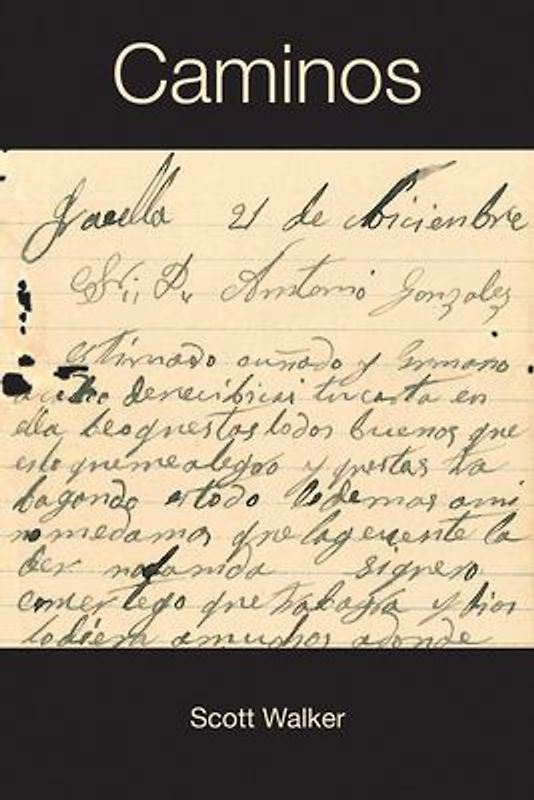 Caminos
21 de Diciembre
Sr. D. Antonio Gonzalez
estimado cuñado y ermano
de recibirai tu carta en
ella beo questas todos buenos que
esto que me alegro y questas tra
bagando estodo lo demas ami
no me damas que lagenente la
der
comer tego que trabagar y dios
lo diera amuchos adonde
Scott Walker